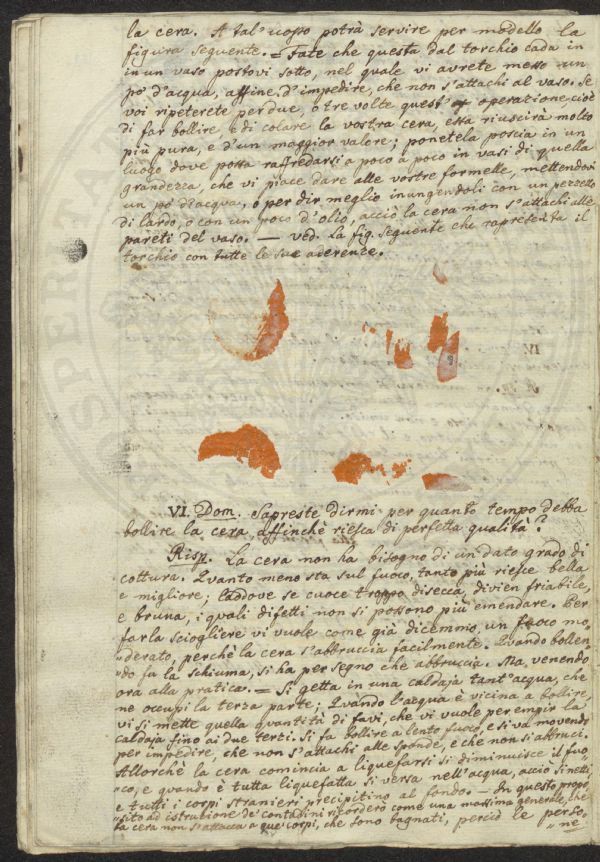 la cera. A tal' uopo potrà servire per modello la
figura seguente. = Fate che questa dal torchio cada in
in un vaso postovi sotto, nel quale vi avrete messo un
pò d'acqua, affine d'impedire, che non s'attachi al vaso. Se
voi ripeterete per due, o tre volte quest' operazione, cioè
di far bollire, e di colare la vostra cera, essa riuscirà molto
più pura, e d'un maggior valore; ponetela poscia in un
luogo dove possa raffredarsi a poco a poco in vasi di quella
grandezza, che vi piace dare alle vostre formelle, mettendovi
un pò d'acqua, o per dir meglio inungendoli con un pezzetto
di lardo, o con un poco d'olio, acciò la cera non s'attachi alle
pareti del vaso. — Ved. la fig. seguente che rapresenta il
torchio con tutte le sue aderenze.
VI. Dom. Sapreste dirmi per quanto tempo debba
bollire la cera, affinchè riesca di perfetta qualità?
Risp. La cera non ha bisogno di un dato grado di
cottura. Quanto meno sta sul fuoco, tanto più riesce bella
e migliore; laddove se cuoce troppo disecca, divien friabile,
e bruna, i quali difetti non si possono più emendare. Per
farla sciogliere vi vuole come già dicemmo, un fuoco mo„
„derato, perchè la cera s'abbruccia facilmente. Quando bollen„
„do fa la schiuma, si ha per segno che abbruccia. Ma, venendo
ora alla pratica. = Si getta in una caldaja tant'acqua, che
ne occupi la terza parte; Quando l'acqua è vicina a bollire,
vi si mette quella quantità di favi, che vi vuole per empir la
caldaja fino ai due terzi. Si fa bollire a lento fuoco, e si va movendo
per impedire, che non s'attachi alle sponde, e che non si abbruci.
Allorchè la cera comincia a liquefarsi si diminuisce il fuo„
„co, e quando è tutta liquefatta si versa nell'acqua, acciò si netti,
e tutti i corpi stranieri precipitino al fondo. — In questo propo„
„sito ad istruzione de' contadini ricorderò come una massima generale, che
la cera non s'attacca a que' corpi, che sono bagnati, perciò le perso„
„ne